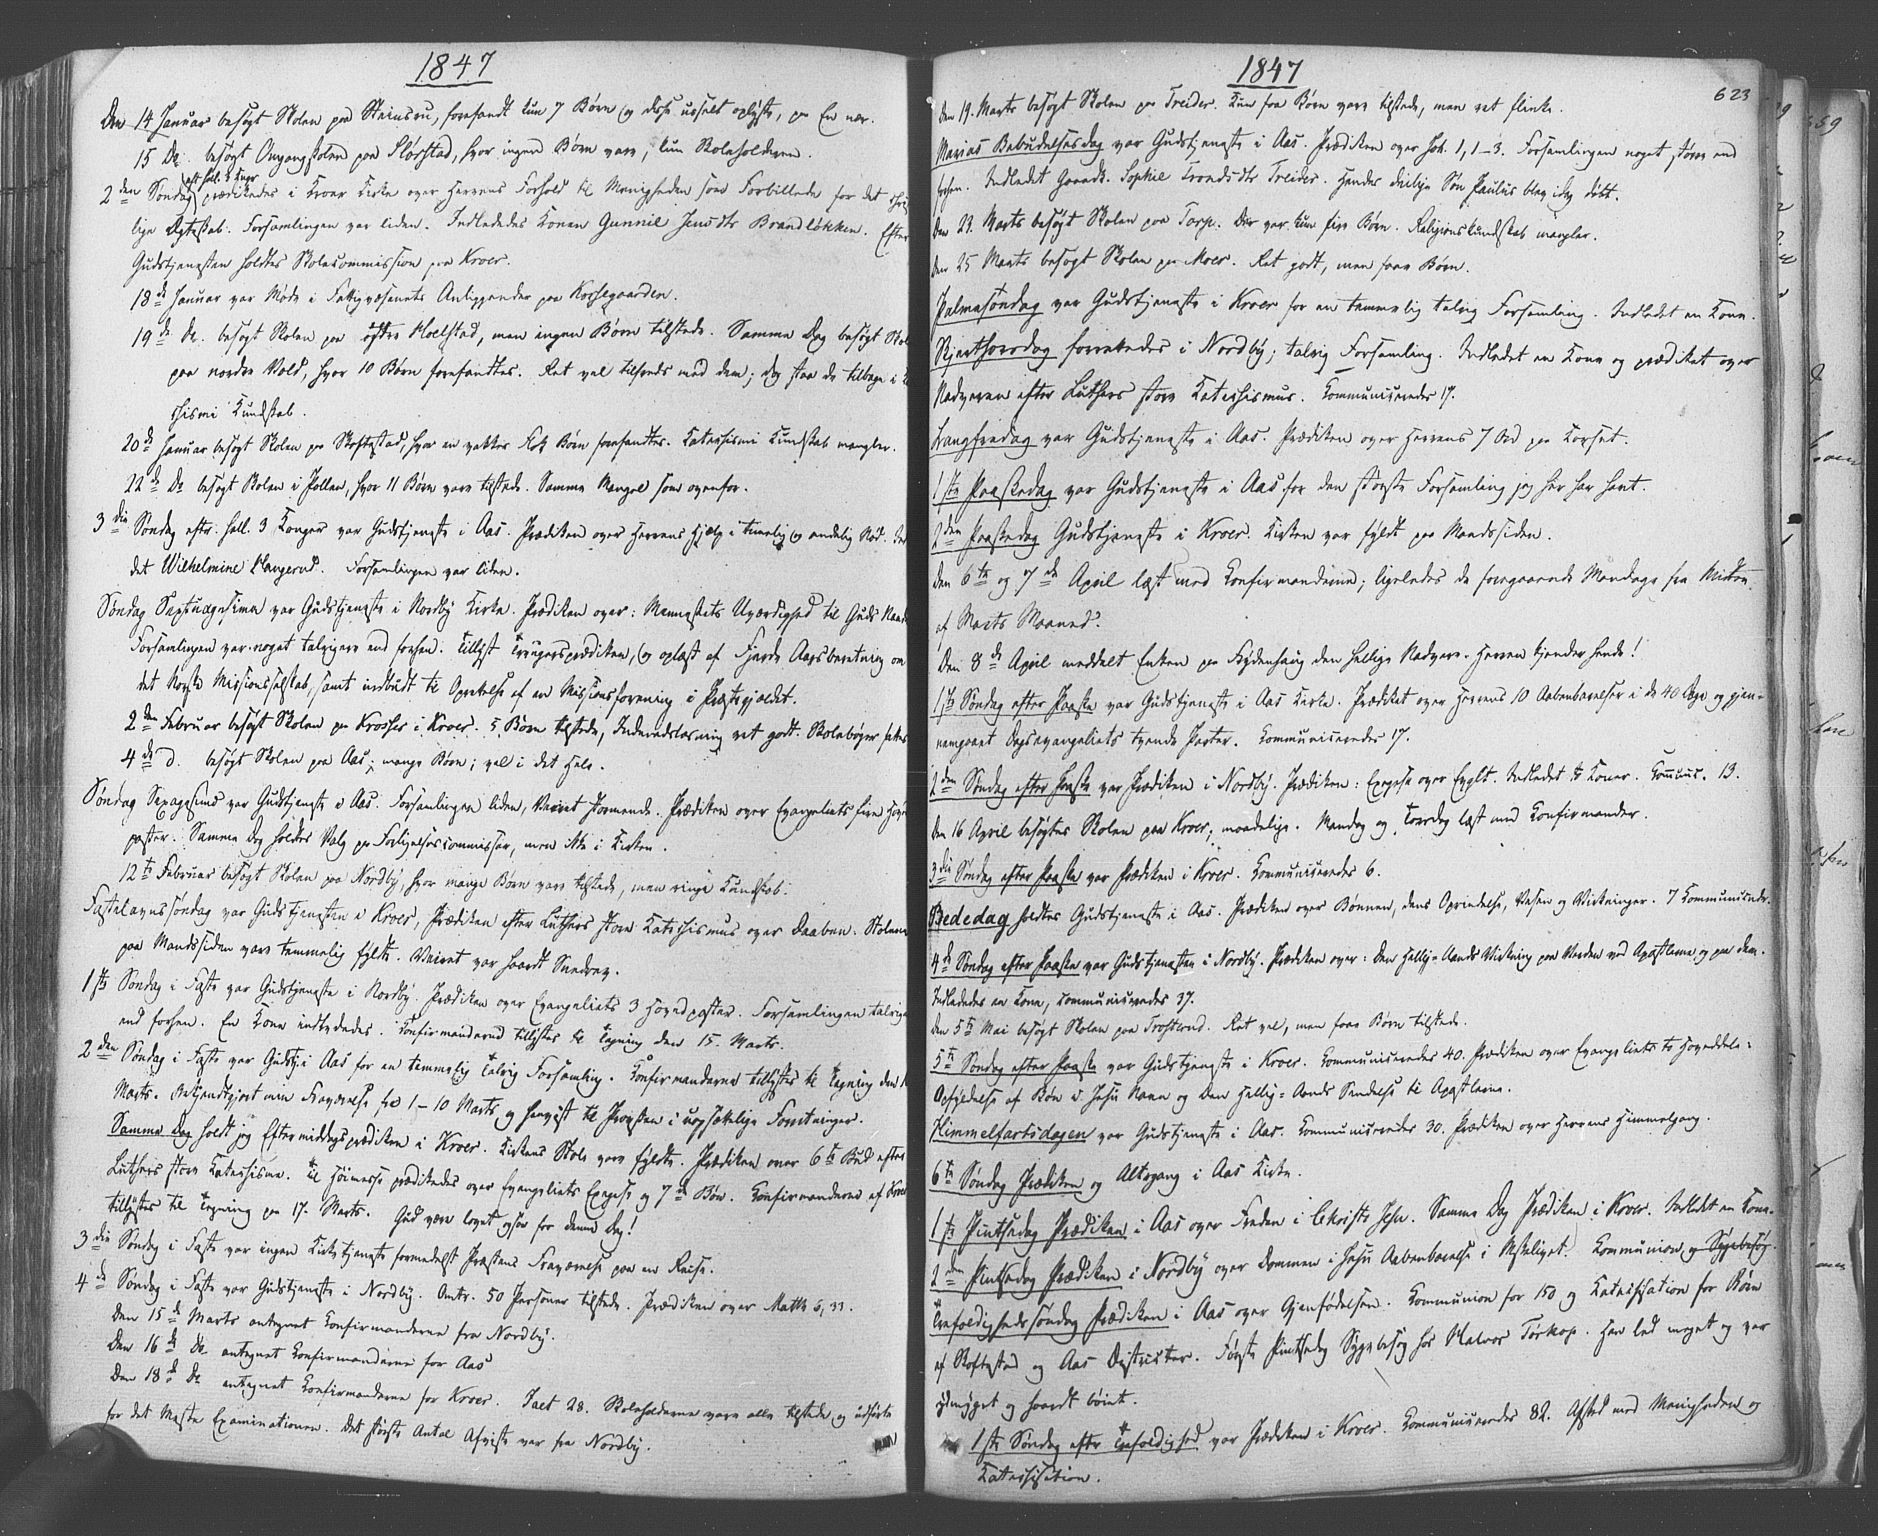 1847
Den 14 Januar besøgt Skolen paa Steinsru, forefandt kun 7 Børn og disse usselt oplyste, paa En nær.
15 Do. besøgt Omgangskolen paa Slorstad, hvor ingen Børn vare, kun Skoleholderen.
eft. hell. 3 Kngr
2den Søndag prædikedes i Kroer Kirke over Herrens Forhold til Menigheden som Forbillede for det christ
lige Ægteskab. Forsamlingen var liden. Indlededes Konen Gunnil Jensdtr Brandløkken. Efter
Gudstjenesten holdtes Skolecommission paa Kroer.
18de Januar var Møde i Fattigvæsenets Anliggender paa Korsegaarden.
19de Do. besøgt Skolen paa østre Hoelstad, men ingen Børn tilstede. Samme Dag besøgt Skol
paa nordre Vold, hvor 10 Børn forefandtes. Ret vel tilfreds med dem; dog staa de tilbage i
chismi Kundskab.
20de Januar besøgt Skolen paa Skoftestad, hvor en vakker Flok Børn forefandtes. Katechismi Kundskab mangler.
22de Do besøgt Skolen i Pollen, hvor 11 Børn vare tilstede. Samme Mangel som ovenfor.
3die Søndag eftr. hell. 3 Konger var Gudstjeneste i Aas. Prædiken over Herrens Hjelp i timelig og aandelig Nød. Ind
det Wilhelmine Haugerud. Forsamlingen var liden.
Søndag Septuagesima var Gudstjeneste i Nordby Kirke. Prædiken over: Menneskets Uværdighed til Guds Naade
Forsamlingen var noget talrigere end forhen. Tillyst Fangeprædiken, og oplæst af Fjerde Aarsberetning om
det Norske Missionsselskab, samt indbudt til Oprettelse af en Missionsforening i Præstegjældet.
2den Februar besøgt Skolen paa Krosser i Kroer. 5 Børn tilstede, Indenadslæsning ret godt. Skolebøger
4de d. besøgt Skolen paa Aas; mange Børn; vel i det Hele.
Søndag Sexagesima var Gudstjeneste i Aas. Forsamlingen liden, Veiret stormende. Prædiken over Evangeliets fire Hoved
poster. Samme Dag holdtes Valg paa Forligelsescommissær, men ikke i Kirken.
12te Februar besøgt Skolen paa Nordby, hvor mange Børn vare tilstede, men ringe Kundskab.
Fastelavnssøndag var Gudstjenesten i Kroer, Prædiken efter Luthers store Katechismus over Daaben. Stolene
paa Mandssiden vare temmelig fyldte. Veiret var haardt Snedrev.
1ste Søndag i Faste var Gudstjeneste i Nordby. Prædiken over Evangeliets 3 Hovedposter. Forsamlingen talrigere
end forhen. En Kone indlededes. Konfirmanderne tillystes til Tegning den 15. Marts.
2den Søndag i Faste var Gudstj. i Aas for en temmelig talrig Forsamling. Konfirmanderne tillystes til Tegning den 16
Marts. Bekjendtgjort min Fraværelse fra 1–10 Marts og henvist til Provsten i uopsættelige Forretninger.
Samme Dag holdt jeg Eftermiddagsprædiken i Kroer. Kirkens Stole vare fyldte. Prædiken over 6te Bud efter
Luthers store Katechisme. Til Høimesse prædikedes over Evangeliets Exegese og 7de Bøn. Konfirmanderne af Kroer
tillystes til Tegning paa 17. Marts. Gud være lovet ogsaa for denne Dag!
3die Søndag i Faste var ingen Kirketjeneste formedelst Præstens Fraværelse paa en Reise.
4de Søndag i Faste var Gudstjeneste i Nordby. Omtr. 50 Personer tilstede. Prædiken over Matth 6, 33.
Den 15de Marts antegnet Konfirmanderne fra Nordby.
Den 16de Do antegnet Konfirmanderne for Aas
Den 18de Do antegnet Konfirmanderne for Kroer. Ialt 28. Skoleholderne vare alle tilstede og udførte
for det Meste Examinationen. Det største Antal Afviste var fra Nordby.
1847
623
Den 19. Marts besøgt Skolen paa Treider. Kun faa Børn vare tilstede, men ret flinke.
Marias Bebudelsesdag var Gudstjeneste i Aas. Prædiken over Joh. 1, 1–3. Forsamlingen noget større end
forhen. Indledet Gaardk. Sophie Trondsdtr Treider. Hendes deilige Søn Paulus blev ikke døbt.
Den 23. Marts besøgt Skolen paa Torp. Der var kun fire Børn. Religionskundskab mangler.
Den 25 Marts besøgt Skolen paa Moer. Ret godt, men faae Børn.
Palmesøndag var Gudstjeneste i Kroer for en temmelig talrig Forsamling. Indledet en Kone.
Skjærthorsdag forrettedes i Nordby; talrig Forsamling. Indledet en Kone og prædiket over
Nadveren efter Luthers store Katechismus. Kommunicerede 17.
Langfredag var Gudstjeneste i Aas. Prædiken over Herrens 7 Ord paa Korset.
1ste Paaskedag var Gudstjeneste i Aas for den største Forsamling jeg her har havt.
2den Paaskedag Gudstjeneste i Kroer. Kirken var fyldt paa Mandssiden.
Den 6te og 7de April læst med Konfirmanderne; ligeledes de foregaaende Mandage fra Midten
af Marts Maaned.
Den 8de April meddelt Enken paa Frydenhaug den hellige Nadvere. Herren kjender hende!
1ste Søndag efter Paaske var Gudstjeneste i Aas Kirke. Prædiket over Herrens 10 Aabenbarelser i de 40 Dage og gjen-
nemgaaet Dagsevangeliets tvende Parter. Kommunicerede 17.
2den Søndag efter Paaske var Prædiken i Nordby. Prædiken: Exegese over Evglt. Indledet to Koner. Commun. 13.
Den 16 April besøgtes Skolen paa Kroer; maadelige. Mandag og Torsdag læst med Konfirmander.
3die Søndag efter Paaske var Prædiken i Kroer. Kommunicerede 6.
Bededag holdtes Gudstjeneste i Aas. Prædiken over Bønnen, dens Oprindelse, Væsen og Virkninger. 7 Kommunicerede.
4de Søndag efter Paaske var Gudstjenesten i Nordby. Prædiken over: Den Hellig-Aands Virkning paa Verden ved Apostlerne og paa dem.
Indlededes en Kone, Kommunicerede 37.
Den 5te Mai besøgt Skolen paa Trosterud. Ret vel, men faae Børn tilstede.
5te Søndag efter Paaske var Gudstjeneste i Kroer. Kommunicerede 40. Prædiken over Evangeliets to Hoveddele:
Opfyldelse af Bøn i Jesu Navn og Den Hellig-Aands Sendelse til Apostlerne.
Himmelfartsdagen var Gudstjeneste i Aas. Kommunicerede 30. Prædiken over Herrens Himmelgang.
6te Søndag Prædiken og Altergang i Aas Kirke.
1ste Pintsedag Prædiken i Aas over Freden i Christo Jesu. Samme Dag Prædiken i Kroer. Indledet en Kone.
2den Pintsedag Prædiken i Nordby over Dommen i Jesu Aabenbarelse i Msklivet. Kommunion og Sygebesøg.
Trefoldighedssøndag Prædiken i Aas over Gjenfødelsen. Kommunion for 150 og Katechisation for Børn
af Skoftestad og Aas Districter. Første Pintsedag Sygebesøg hos Halvor Torkop. Han led meget og var
ydmyget og haardt bøiet.
1ste Søndag efter Trefoldighed var Prædiken i Kroer. Kommunicerede 82. Afsked med Menigheden og
Katechisation.